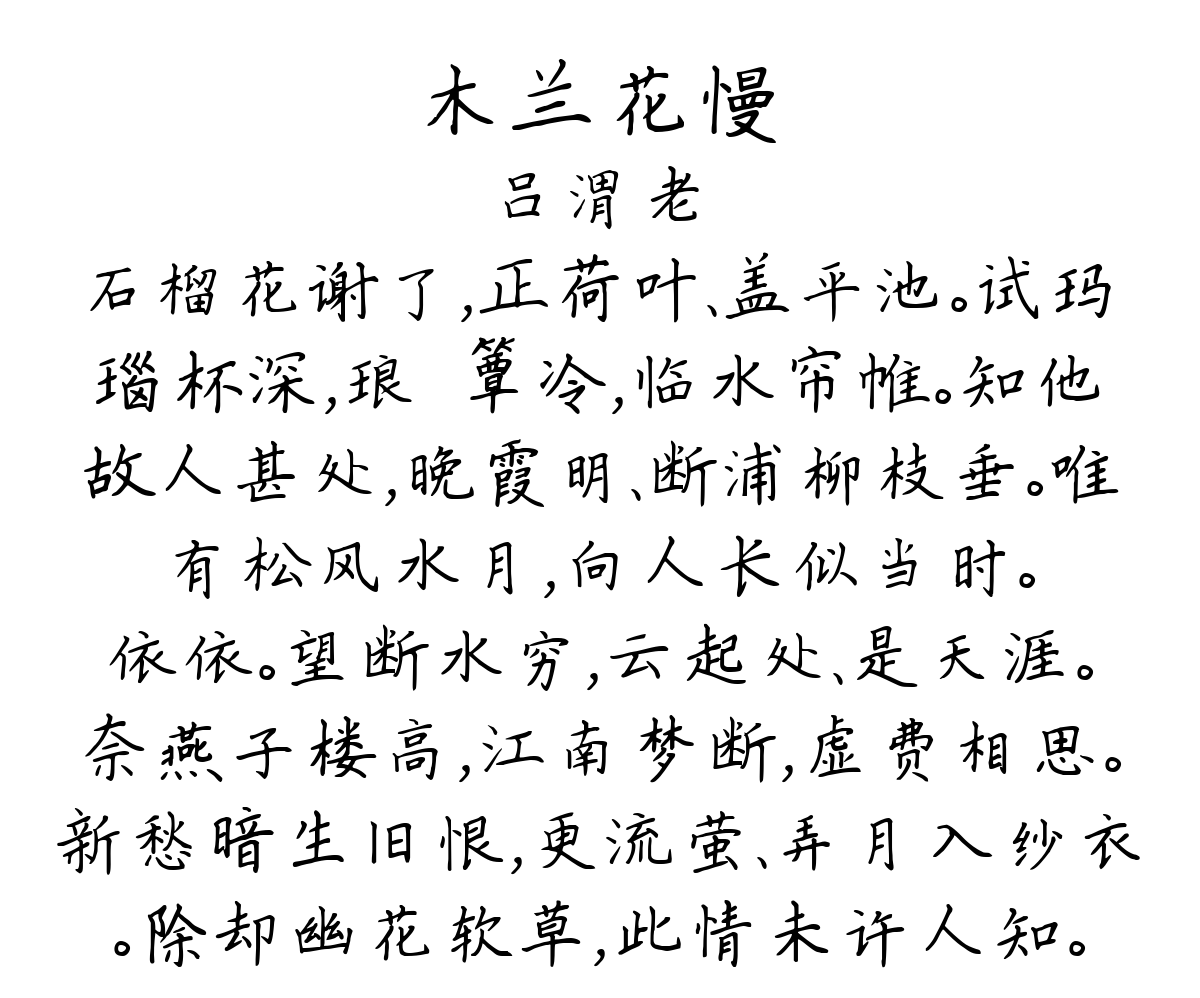 木兰花慢
吕渭老
石榴花谢了,正荷叶、盖平池。试玛
瑙杯深,琅 簟冷,临水帘帷。知他
故人甚处,晚霞明、断浦柳枝垂。唯
有松风水月,向人长似当时。
依依。望断水穷,云起处、是天涯。
奈燕子楼高,江南梦断,虚费相思。
新愁暗生旧恨,更流萤、弄月入纱衣
。除却幽花软草,此情未许人知。